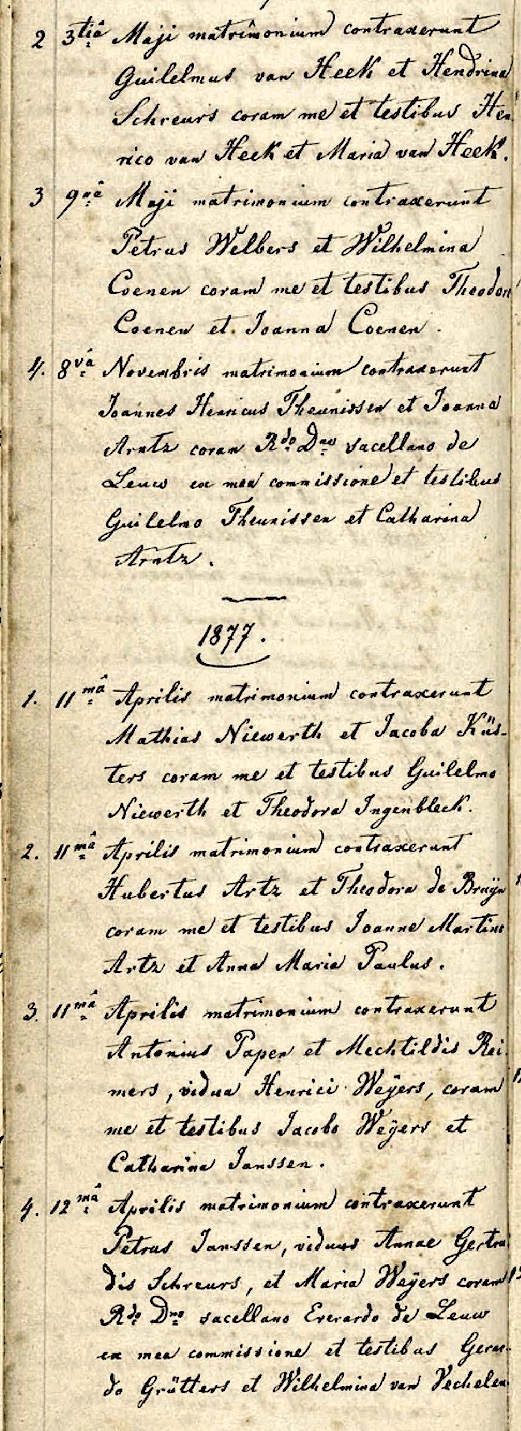 2 3tiâ Maji matrimonium contraxerunt
Guilelmus van Heek et Hendrina
Schreurs coram me et testibus Hen
rico van Heek et Maria van Heek.
3 9nâ Maji matrimonium contraxerunt
Petrus Welbers et Wilhelmina
Coenen coram me et testibus Theodoro
Coenen et Joanna Coenen.
4. 8vâ Novembris matrimonium contraxerunt
Joannes Henricus Theunissen et Joanna
Arntz coram Rdo Dno sacellano de
Leuw ex mea commissione et testibus
Guilelmo Theunissen et Catharina
Arntz.
1877.
1. 11mâ Aprilis matrimonium contraxerunt
Mathias Niewerth et Jacoba Küs-
ters coram me et testibus Guilelmo
Niewerth et Theodora Ingenbleek.
2. 11mâ Aprilis matrimonium contraxerunt
Hubertus Artz et Theodora de Bruÿn
coram me et testibus Joanne Martino
Artz et Anna Maria Paulus.
3. 11mâ Aprilis matrimonium contraxerunt
Antonius Papen et Mechtildis Rei-
mers, vidua Henrici Weÿers, coram
me et testibus Jacobo Weÿers et
Catharina Janssen.
4. 12mâ Aprilis matrimonium contraxerunt
Petrus Janssen, viduus Annae Gertru
dis Schreurs, et Maria Weÿers coram
Rdo Dno sacellano Everardo de Leuw
ex mea commissione et testibus Gerar-
do Grütters et Wilhelmina van Vechelen